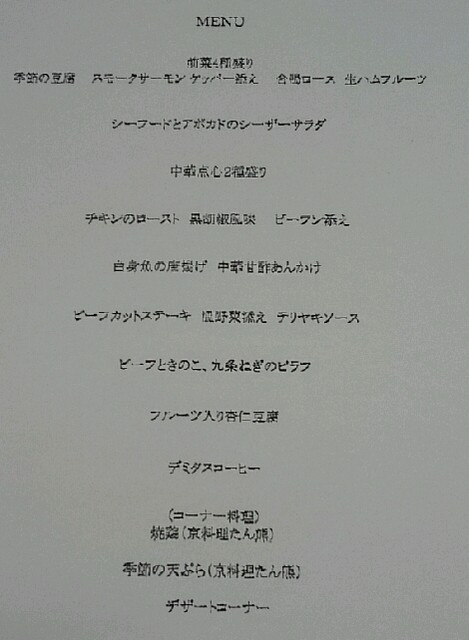 MENU
前菜4種盛り
季節の豆腐 スモークサーモンケッパー添え 合鴨ロース 生ハムフルーツ
シーフードとアボカドのシーザーサラダ
中華点心2種盛り
チキンのロースト 黒胡椒風味 ビーフン添え
白身魚の唐揚げ 中華甘酢あんかけ
ビーフカットステーキ 温野菜添え テリヤキソース
ビーフときのこ、九条ねぎのピラフ
フルーツ入り杏仁豆腐
デミタスコーヒー
(コーナー料理)
焼鶏(京料理たん熊)
季節の天ぷら(京料理たん熊)
デザートコーナー